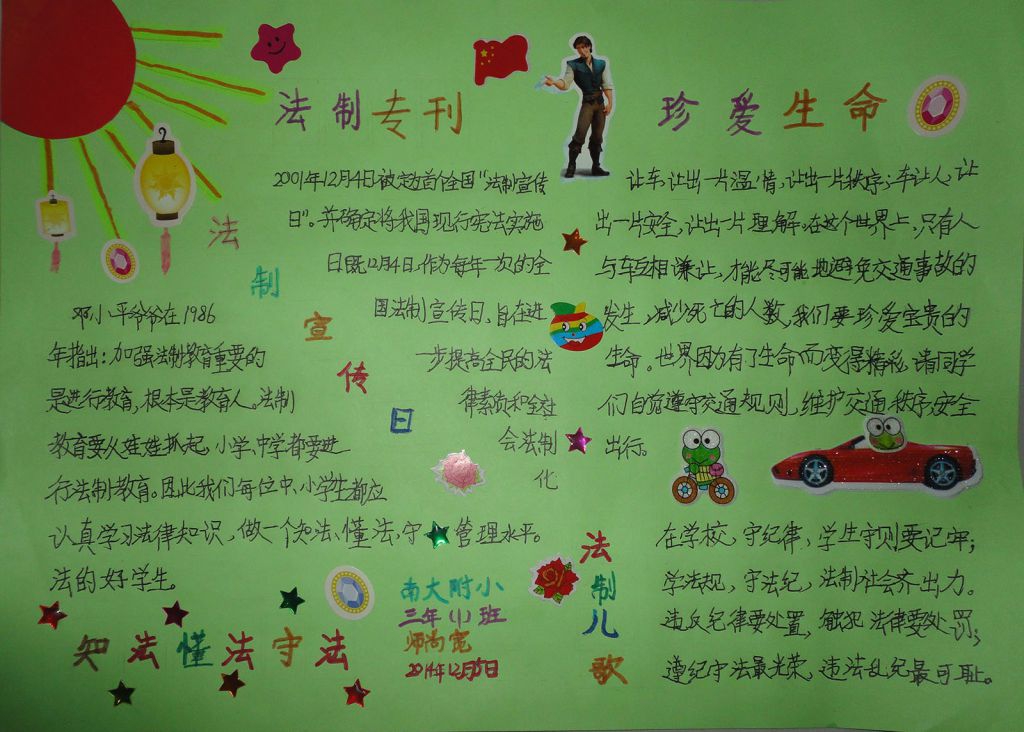 法制专刊
珍爱生命
法制宣传日
2001年12月4日被定为首个全国“法制宣传
日”。并确定将我国现行宪法实施
日既12月4日,作为每年一次的全
国法制宣传日,旨在进
一步提高全民的法
律素质和全社
会法制
化
管理水平。
邓小平爷爷在1986
年指出:加强法制教育重要的
是进行教育,根本是教育人。法制
教育要从娃娃抓起,小学、中学都要进
行法制教育。因此我们每位中、小学生都应
认真学习法律知识,做一个知法、懂法、守
法的好学生。
知法懂法守法
南大附小
三年(1)班
师尚宽
让车,让出一片温情,让出一片秩序;车让人,让
出一片安全,让出一片理解。在这个世界上,只有人
与车互相谦让,才能尽可能地避免交通事故的
发生,减少死亡的人数,我们要珍爱宝贵的
生命。世界因为有了生命而变得精彩,请同学
们自觉遵守交通规则,维护交通秩序,安全
出行。
法制儿歌
在学校,守纪律,学生守则要记牢;
学法规,守法纪,法制社会齐出力。
违反纪律要处置,触犯法律要处罚;
遵纪守法最光荣,违法乱纪最可耻。